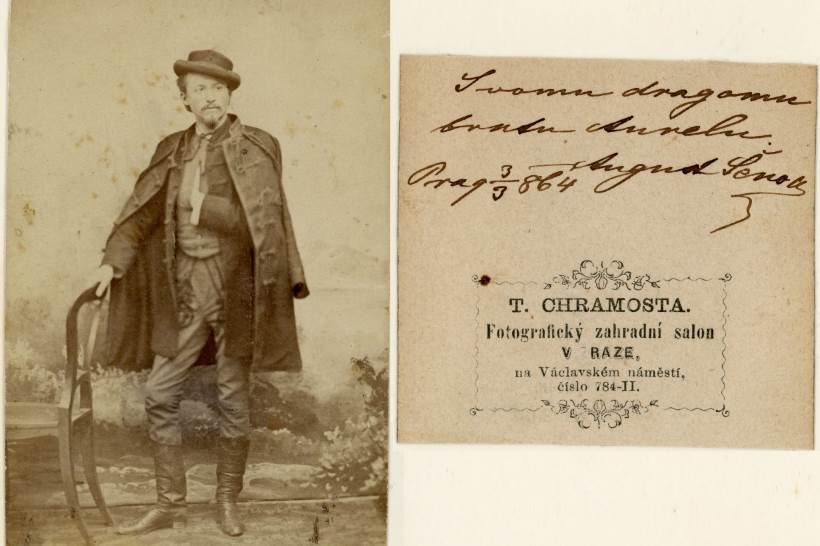 Svomu dragomu
bratu Aurelu.
August Šenoa
Prag 3/3 864
T. CHRAMOSTA.
Fotografický zahradní salon
V RAZE,
na Václavském náměstí,
číslo 784-II.